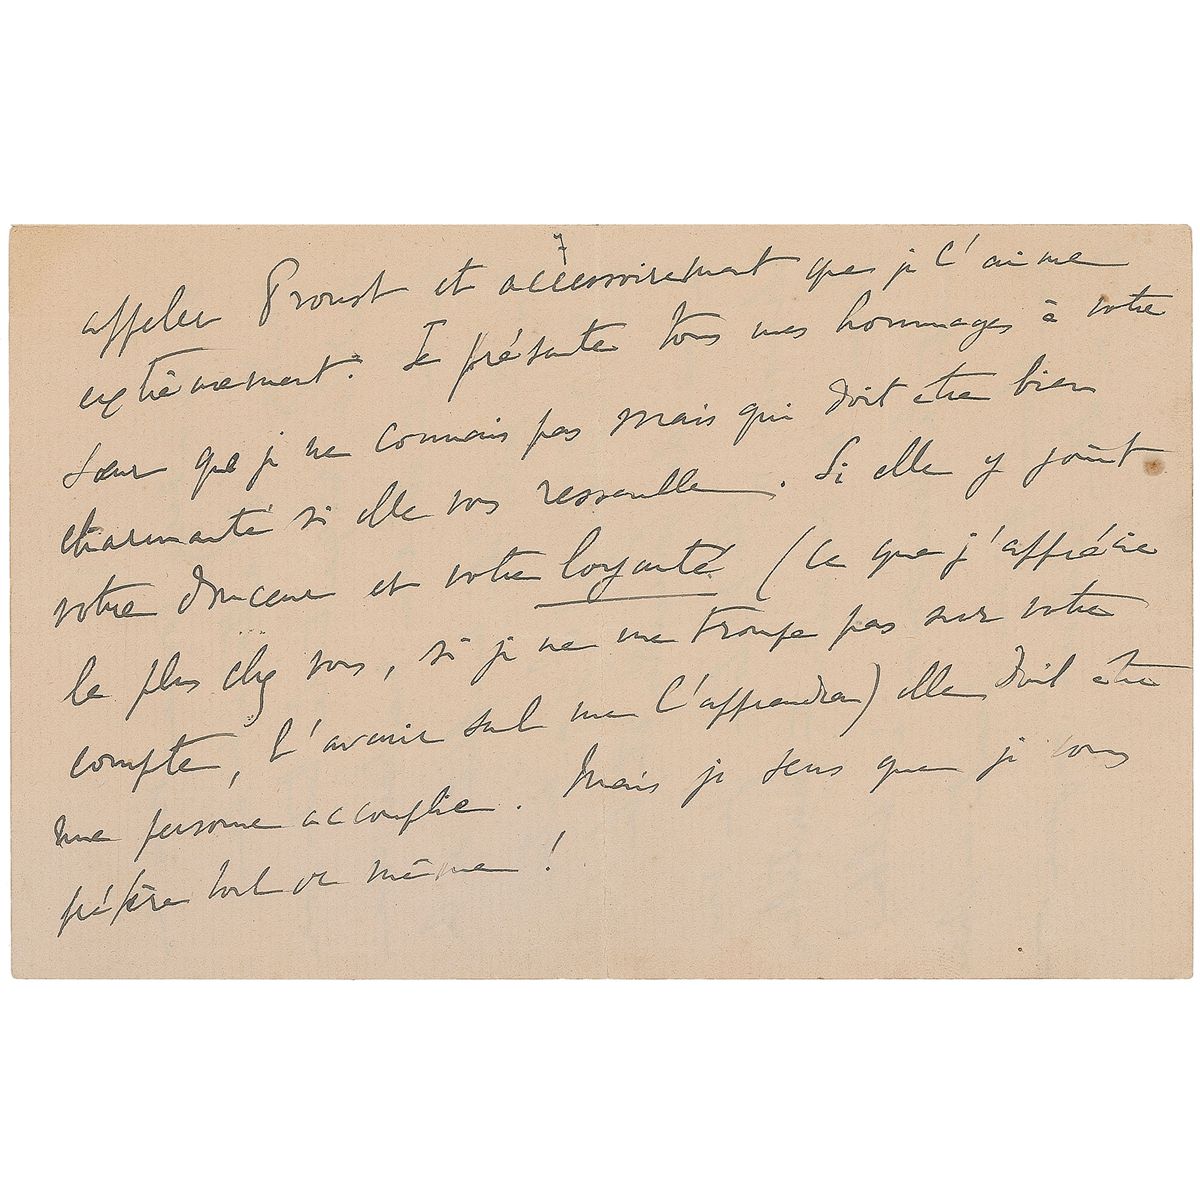 appeler Proust et accessoirement que je l'aime
extrêmement. Je présente tous mes hommages à votre
sœur que je ne connais pas mais qui doit être bien
charmante si elle vous ressemble. Si elle y joint
votre douceur et votre loyauté (ce que j'apprécie
le plus chez vous, si je ne me trompe pas sur votre
compte, l'avenir seul me l'apprendra) elle doit être
une personne accomplie. Mais je sens que je vous
préfère tout de même !